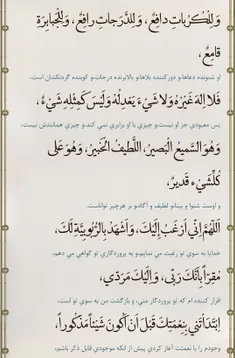 وَلِلْكُرُباتِ دافِعٌ، وَلِلدَّرَجاتِ رافِعٌ، وَلِلْجَبابِرَةِ
قامِعٌ،
او شنونده دعاهاو دوركننده بلاهاو بالابرنده درجات،و كوبنده گردنكشان است،
فَلا اِلهَ غَيْرُهُ وَلا شَىْءَ يَعْدِلُهُ وَلَيْسَ كَمِثْلِهِ شَىْءٌ،
پس معبودي جز او نيست،و چيزي با او برابري نمي كند،و چيزي همانندش نيست،
وَهُوَ السَّميعُ الْبَصيرُ، اللَّطيفُ الْخَبيرُ، وَهُوَ عَلى
كُلِّشَىْءٍ قَديرٌ،
و اوست شنوا و بينا،و لطيف و آگاه،و بر هرچيز تواناست.
اَللّهُمَّ اِنّى اَرْغَبُ إِلَيْكَ، وَاَشْهَدُ بِالرُّبُوبِيَّةِ لَكَ،
خدايا به سوي تو رغبت مي نمايم،و به پروردگاري تو گواهي مي دهم،
مُقِرّاً بِاَنَّكَ رَبّى، وَ اِلَيْكَ مَرَدّى،
اقرار كننده ام كه تو پروردگار مني، و بازگشت من به سوي تو است،
اِبْتَدَأتَنى بِنِعْمَتِكَ قَبْلَ اَنْ اَكُونَ شَيْئاً مَذْكُوراً،
وجودم را با نعمتت آغاز كردي پيش از آنكه موجودي قابل ذكر باشم،